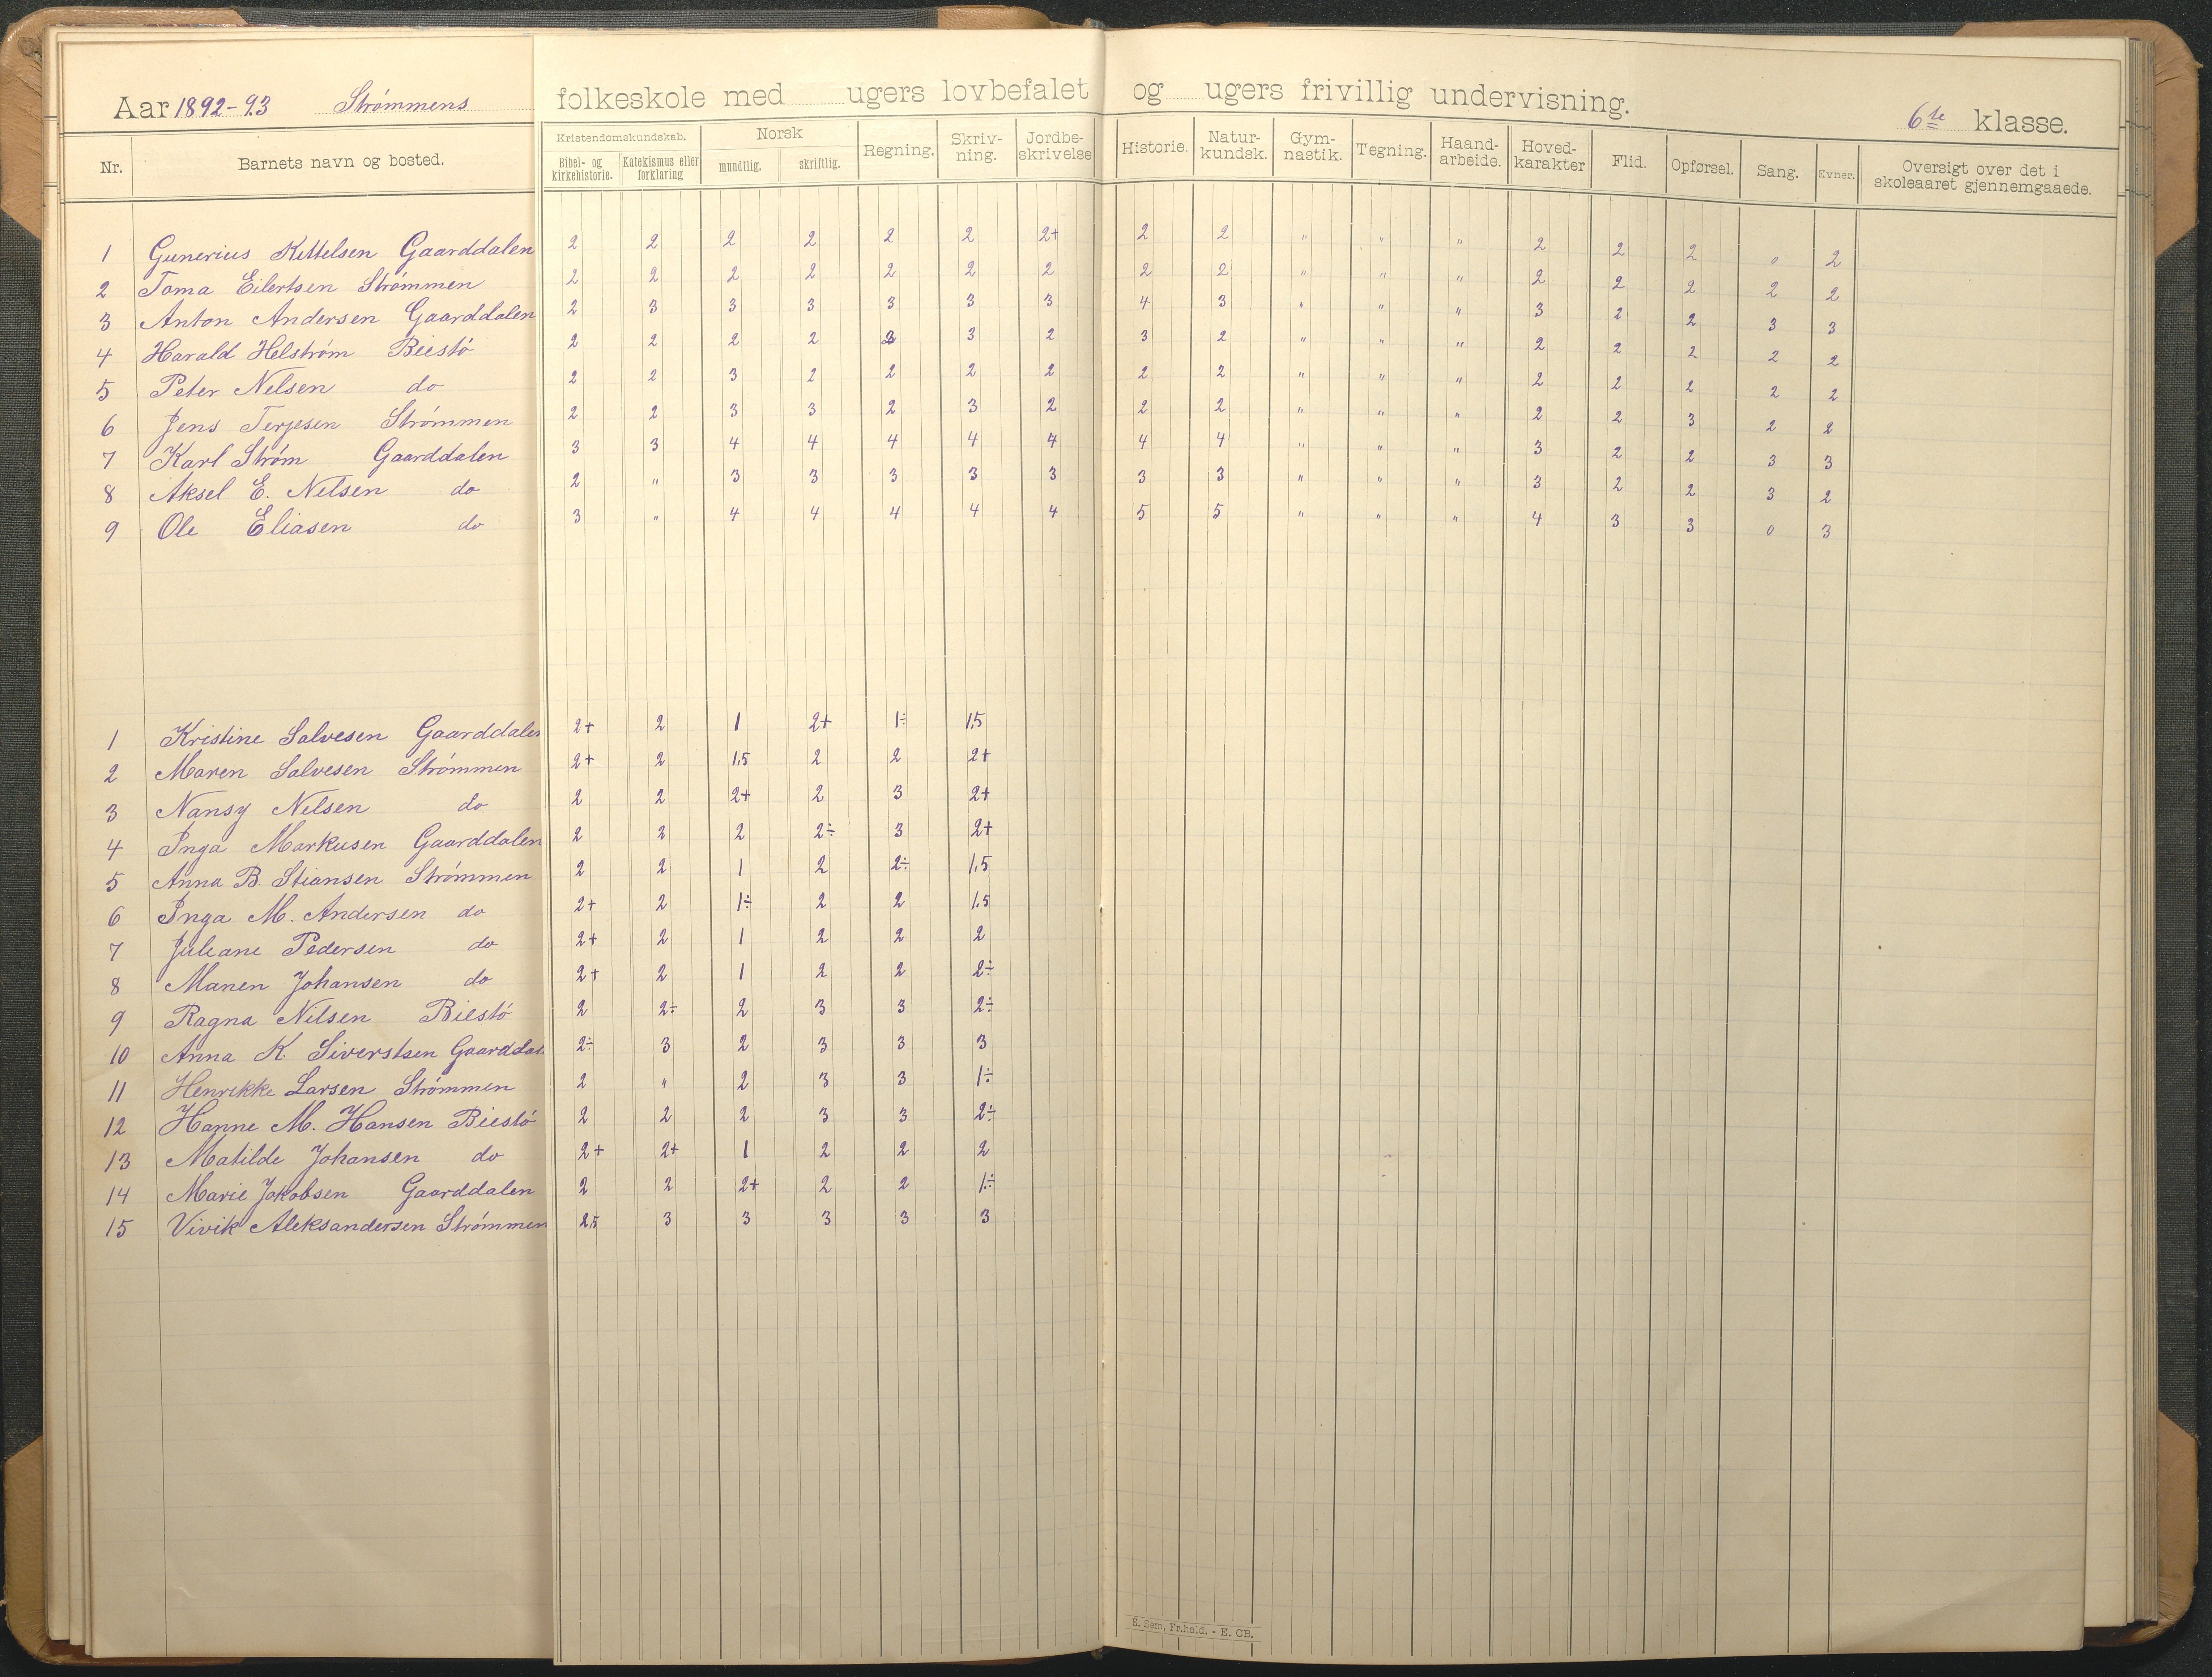 Aar 1892-93 Strømmens folkeskole med ugers lovbefalet og ugers frivillig undervisning. 6te klasse.
Nr. Barnets navn og bosted. Kristendomskundskab. Bibel- og kirkehistorie. Katekismus eller forklaring Norsk mundtlig. skriftlig. Regning. Skriv-ning. Jordbe-skrivelse Historie. Natur-kundsk. Gym-nastik. Tegning. Haand-arbeide. Hoved-karakter Flid. Opførsel. Sang. Evner. Oversigt over det i skoleaaret gjennemgaaede.
1 Gunerius Kittelsen Gaarddalen 2 2 2 2 2 2 2+ 2 2 " " " 2 2 2 0 2
2 Toma Eilertsen Strømmen 2 2 2 2 2 2 2 2 2 " " " 2 2 2 2 2
3 Anton Andersen Gaarddalen 2 3 3 3 3 3 3 4 3 " " " 3 2 2 3 3
4 Harald Helstrøm Biestö 2 2 2 2 3 2 3 2 " " " 2 2 2 2 2
5 Peter Nelsen do 2 2 3 2 2 2 2 2 2 " " " 2 2 2 2 2
6 Jens Terjesen Strømmen 2 2 3 3 2 3 2 2 2 " " " 2 2 3 2 2
7 Karl Strøm Gaarddalen 3 3 4 4 4 4 4 4 4 " " " 3 2 2 3 3
8 Aksel E. Nelsen do 2 " 3 3 3 3 3 3 3 " " " 3 2 2 3 2
9 Ole Eliasen do 3 " 4 4 4 4 4 5 5 " " " 4 3 3 0 3
1 Kristine Salvesen Gaarddalen 2+ 2 1 2+ 1÷ 1,5
2 Maren Salvesen Strømmen 2+ 2 1,5 2 2 2+
3 Nansy Nelsen do 2 2 2+ 2 3 2+
4 Inga Markusen Gaarddalen 2 2 2 2÷ 3 2+
5 Anna B. Stiansen Strømmen 2 2 1 2 2÷ 1,5
6 Inga M. Andersen do 2+ 2 1÷ 2 2 1,5
7 Juliane Pedersen do 2+ 2 1 2 2 2
8 Manen Johansen do 2+ 2 1 2 2 2÷
9 Ragna Nilsen Biestö 2 2÷ 2 3 3 2÷
10 Anna K. Siverstsen Gaarddal 2÷ 3 2 3 3 3
11 Henrikke Larsen Strømmen 2 " 2 3 3 1÷
12 Hanne M. Hansen Biestö 2 2 2 3 3 2÷
13 Matilde Johansen do 2+ 2+ 1 2 2 2
14 Marie Jakobsen Gaarddalen 2 2 2+ 2 2 1÷
15 Vivik Aleksandersen Strømmen 2,5 3 3 3 3 3
E. Sem, Fr.hald. - E. CB.